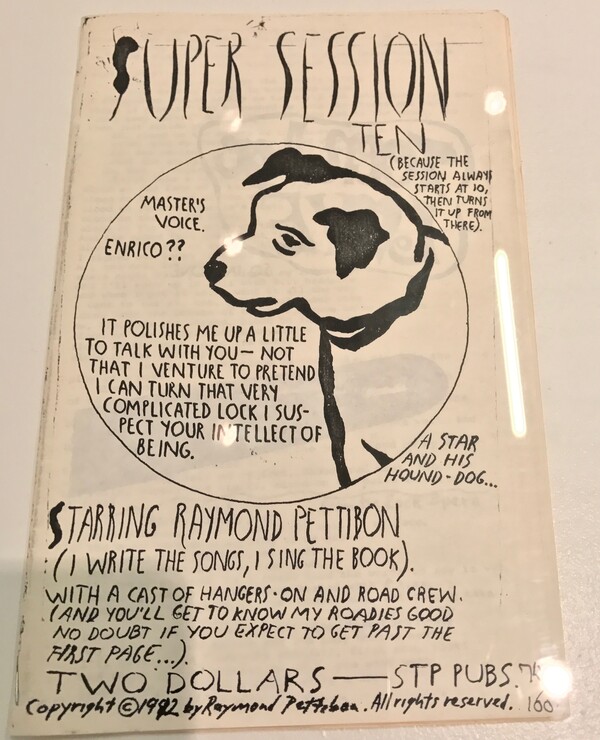 SUPER SESSION
TEN
(BECAUSE THE
SESSION ALWAYS
STARTS AT 10,
THEN TURNS
IT UP FROM
THERE).
MASTER'S
VOICE.
ENRICO??
IT POLISHES ME UP A LITTLE
TO TALK WITH YOU— NOT
THAT I VENTURE TO PRETEND
I CAN TURN THAT VERY
COMPLICATED LOCK I SUS-
PECT YOUR INTELLECT OF
BEING.
A STAR
AND HIS
HOUND-DOG...
STARRING RAYMOND PETTIBON
(I WRITE THE SONGS, I SING THE BOOK).
WITH A CAST OF HANGERS-ON AND ROAD CREW.
(AND YOU'LL GET TO KNOW MY ROADIES GOOD
NO DOUBT IF YOU EXPECT TO GET PAST THE
FIRST PAGE...).
TWO DOLLARS — STP PUBS.
Copyright © 1992 by Raymond Pettibon. All rights reserved. 160